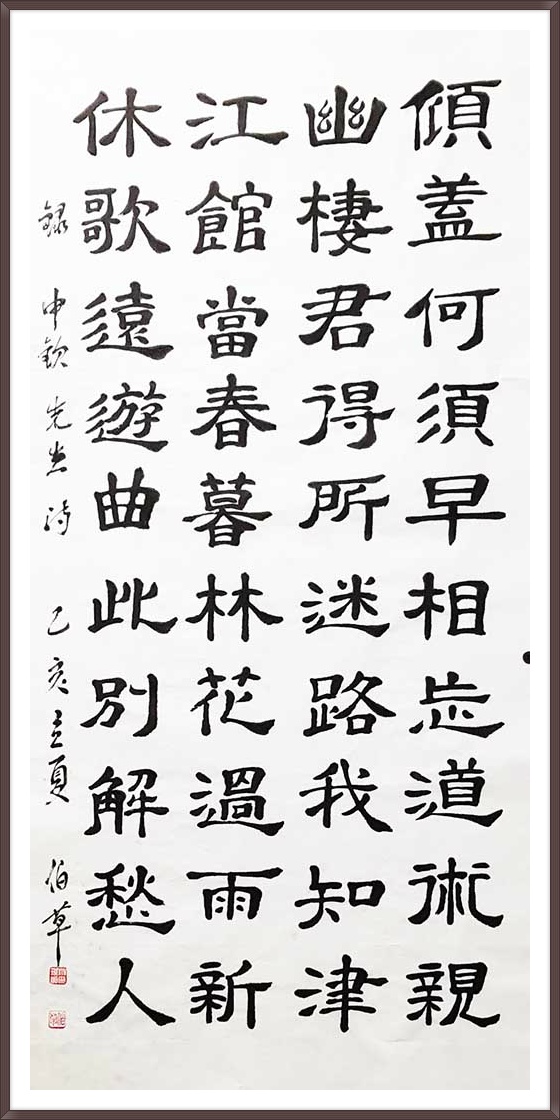 傾蓋何須早相忘道術親
幽棲君得所迷路我知津
江館當春暮林花過雨新
休歌遠遊曲此別解愁人
錄 申欽先生詩 己亥立夏 伯草